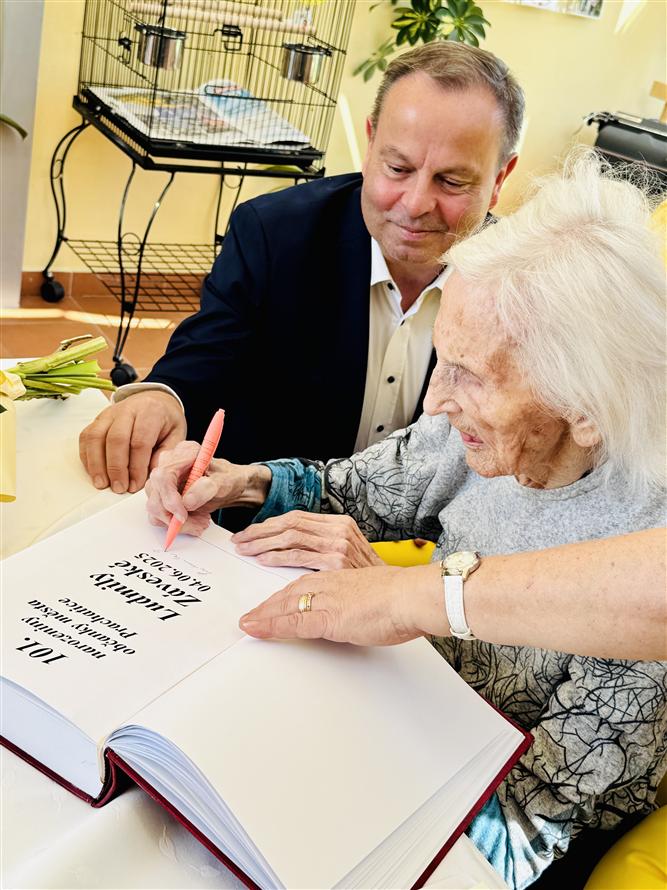 101.
narozeniny
občanky města
Prachatice
Ludmily
Záveské
04.06.2025